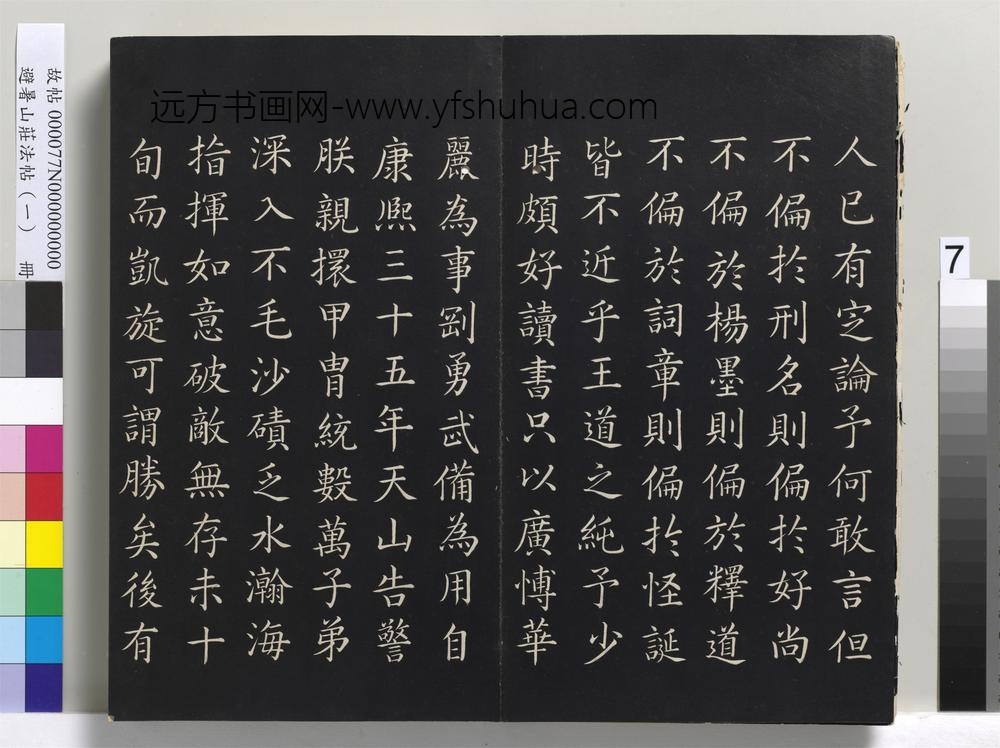 远方书画网-www.yfshuhua.com
人已有定論予何敢言但
不偏扵刑名則偏扵好尚
不偏於楊墨則偏於釋道
不偏於詞章則偏扵怪誕
皆不近乎王道之純予少
時頗好讀書只以廣愽華
麗為事剛勇武備為用自
康熈三十五年天山告警
朕親擐甲冑統數萬子弟
深入不毛沙磧乏水瀚海
指揮如意破敵無存未十
旬而凱旋可謂勝矣後有
故帖 000077N000000000
避暑山莊法帖（一） 冊
7